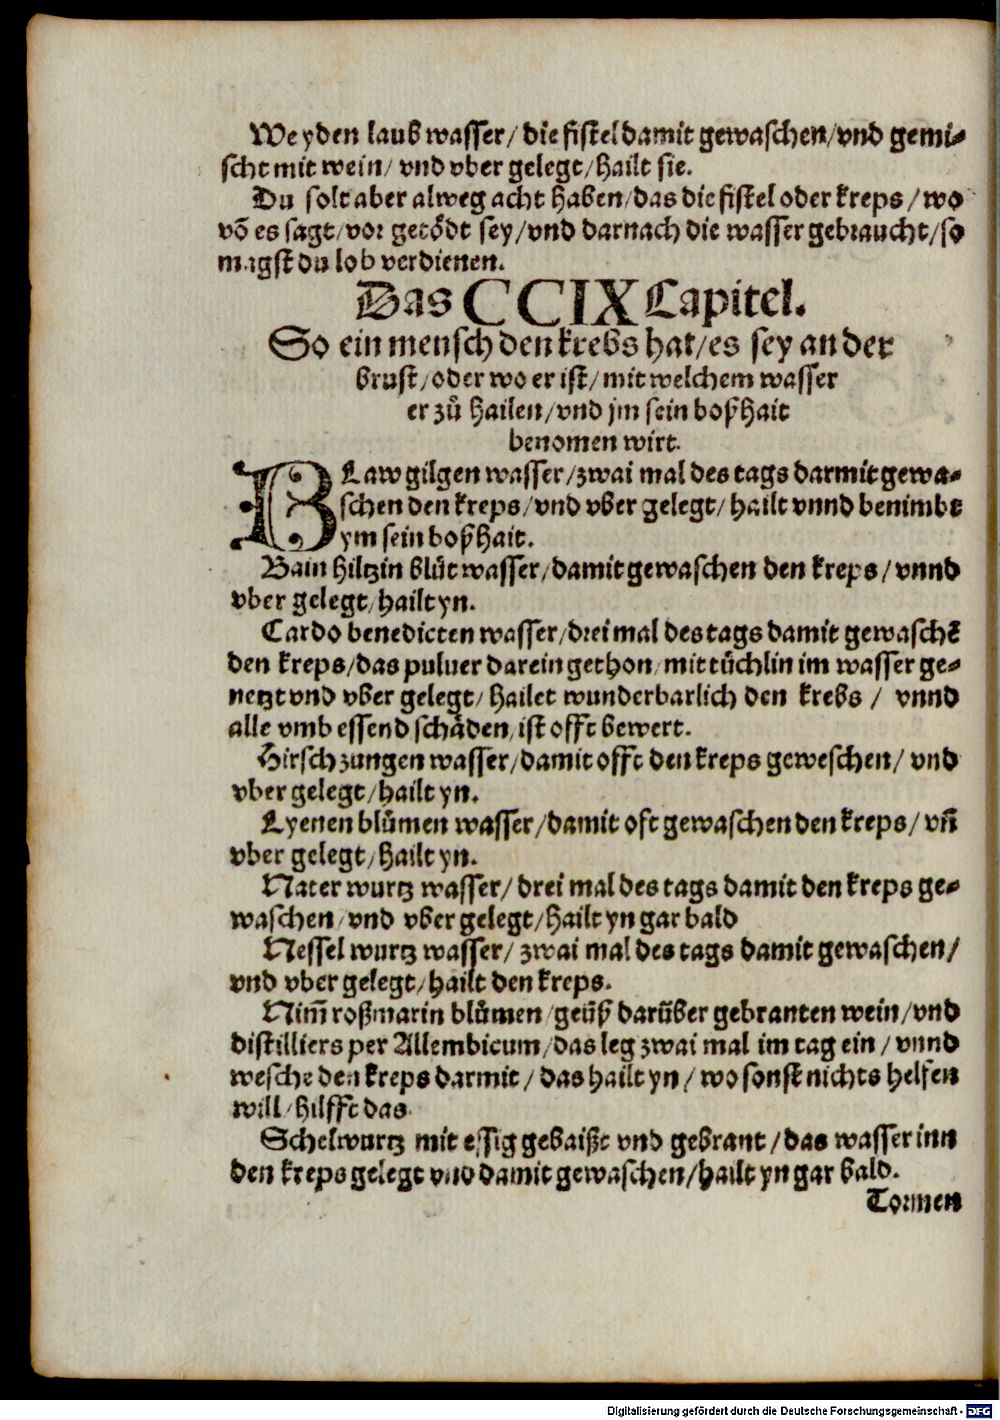 Weyden laub wasser/ die fistel damit gewaschen/vnd gemi⸗
scht mit wein/ vnd vber gelegt/ hailt sie.
Du solt aber alweg acht haben/das die fistel oder kreps/ wo
võ es sagt/vor getödt sey/vnd darnach die wasser gebraucht/so
magst du lob verdienen.
Das CCIX Capitel.
So ein mensch den krebs hat/es sey an der
brust/oder wo er ist/mit welchem wasser
er zů hailen/vnd jm sein boßhait
benomen wirt.
BLaw gilgen wasser/zwai mal des tags darmit gewa⸗
schen den kreps/vnd vber gelegt/ hailt vnnd benimbt
ym sein boßhait.
Bain hiltzin blůt wasser/damit gewaschen den kreps/ vnnd
vber gelegt/hailt yn.
Cardo benedicten wasser/drei mal des tags damit gewaschẽ
den kreps/das puluer darein gethon/mit tůchlin im wasser ge⸗
netzt vnd vber gelegt/ hailet wunderbarlich den krebs / vnnd
alle vmb essend schåden/ist offt bewert.
Hirsch zungen wasser/damit offt den kreps geweschen/ vnd
vber gelegt/hailt yn.
Lyenen blůmen wasser/damit oft gewaschen den kreps/ vñ
vber gelegt/hailt yn.
Nater wurtz wasser/ drei mal des tags damit den kreps ge⸗
waschen/vnd vber gelegt/hailt yn gar bald
Nessel wurtz wasser/ zwai mal des tags damit gewaschen/
vnd vber gelegt/hailt den kreps.
Nim̃ roßmarin blůmen/geůß darůber gebranten wein/vnd
distilliers per Allembicum/das leg zwai mal im tag ein / vnnd
wesche den kreps darmit/ das hailt yn/ wo sonst nichts helfen
will/hilfft das
Schelwurtz mit essig gebaißt vnd gebrant/das wasser inn
den kreps gelegt vnd damit gewaschen/hailt yn gar bald.
Tormen
Digitalisierung gefördert durch die Deutsche Forschungsgemeinschaft - DFG